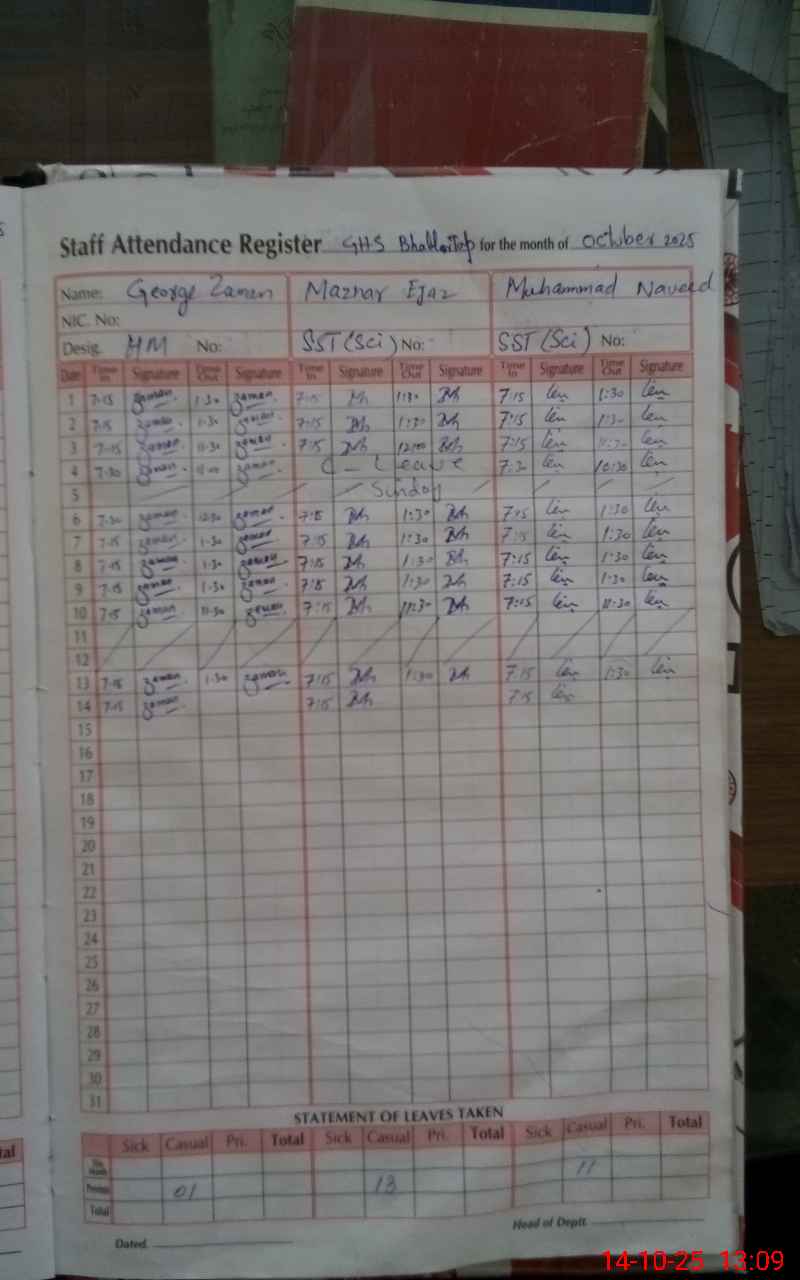 Staff Attendance Register GHS for the month of October 2025
Name: George Zaman Mazhar Ejaz Muhammad Naveed
NIC. No:
Desig. HM No: SST (Sci) No: SST (Sci) No:
Date Time In Signature Time Out Signature Time In Signature Time Out Signature Time In Signature Time Out Signature
1 7-15 zaman 1-30 zaman 7:15 1:30 7:15 1:30
2 7-15 zaman 1-30 zaman 7:15 1:30 7:15 1:30
3 7-15 zaman 11-30 zaman 7:15 12:00 7:15
4 7-30 zaman zaman C-Leave 7:30 10:30
5 Sunday
6 7-30 zaman 12:30 zaman 7:15 1:30 7:15 1:30
7 7-15 zaman 1-30 zaman 7:15 1:30 7:15 1:30
8 7-15 zaman 1-30 zaman 7:15 1:30 7:15 1:30
9 7-15 zaman 1-30 zaman 7:15 1:30 7:15 1:30
10 7-15 zaman 11-30 zaman 7:15 11:30 7:15 11:30
11
12
13 7-15 zaman 1-30 zaman 7:15 1:30 7:15 1:30
14 7-15 zaman 7:15 7:15
15
16
17
18
19
20
21
22
23
24
25
26
27
28
29
30
31
STATEMENT OF LEAVES TAKEN
Sick Casual Pri. Total Sick Casual Pri. Total Sick Casual Pri. Total
This Month 11
Previous 01 13
Total
Head of Deptt.
Dated.
14-10-25 13:09